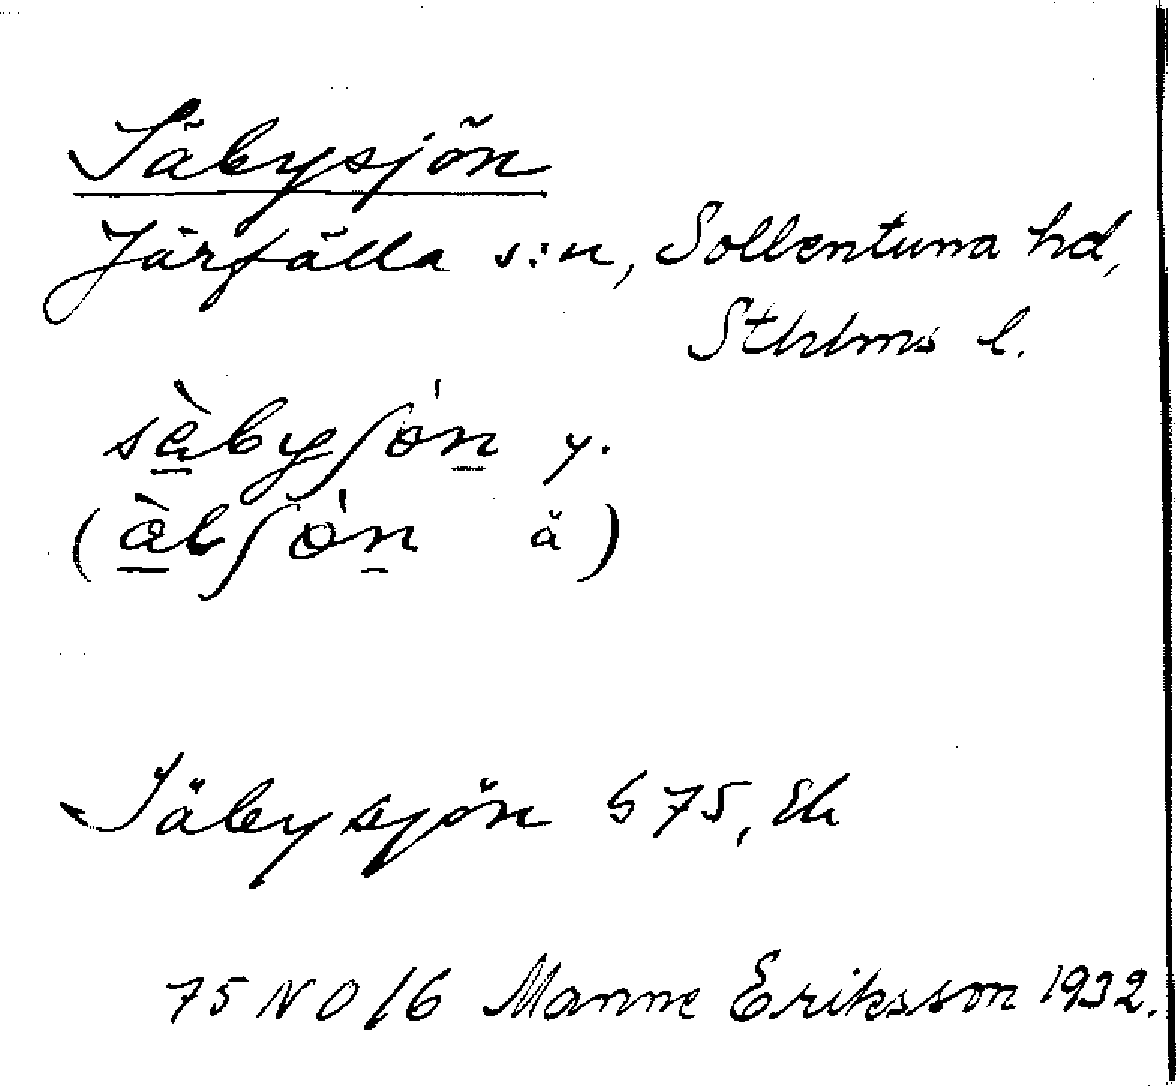 Säbysjön
Järfälla s:n, Sollentuna hd,
Sthlms l.
sàbyʃön y.
(àbʃön ä)
Säbysjön G 75, Ek
75 NO/6 Manne Eriksson 1932.